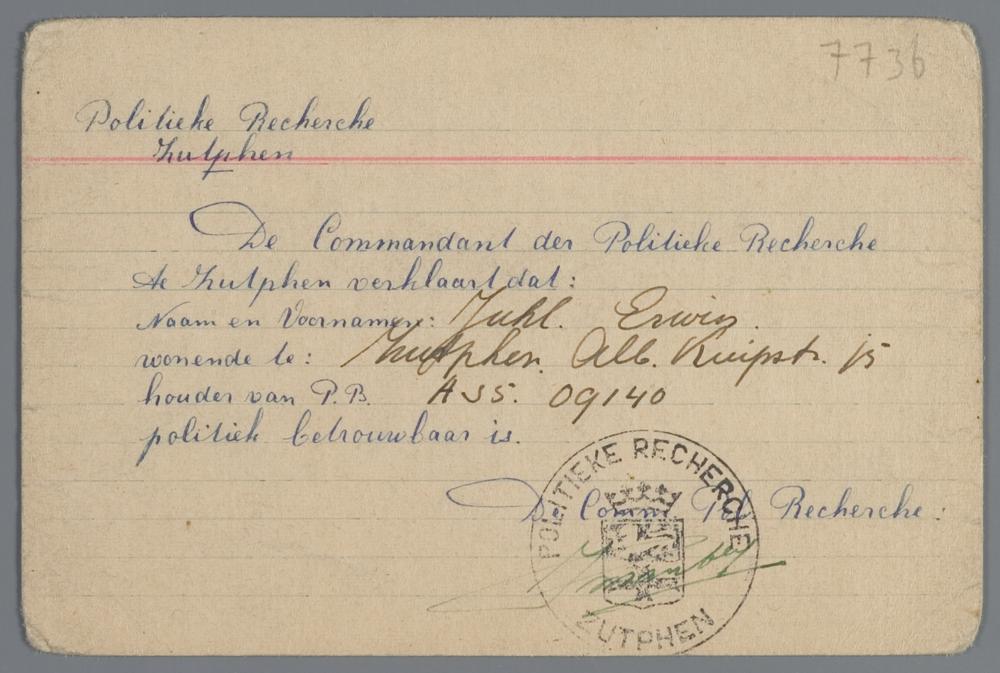 7736
Politieke Recherche
Zutphen
De Commandant der Politieke Recherche
te Zutphen verklaart dat:
Naam en Voornamen: Juhl. Erwin.
wonende te: Zutphen. Alb. Kuipstr. 15
houder van P.B. A 35. 09140
politiek betrouwbaar is.
De Comm. Pol Recherche:
POLITIEKE RECHERCHE
ZUTPHEN